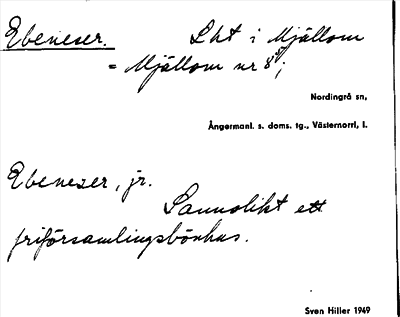 Ebeneser. Lht i Mjällom
= Mjällom nr 8⁵;
Nordingrå sn,
Ångermanl. s. doms. tg., Västernorrl. l.
Ebeneser, jr.
Sannolikt ett
friförsamlingsbönhus.
Sven Hiller 1949